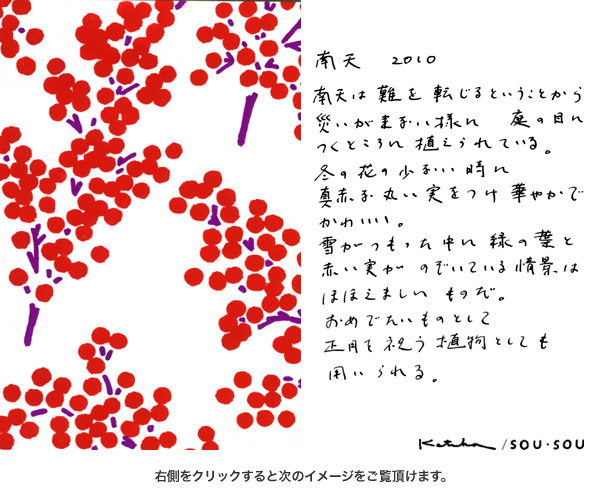 南天 2010
南天は難を転じるということから
災いがまない様に 庭の目に
つくところに植えられている。
冬の花の少ない時に
真赤な丸い実をつけ華やかで
かわいい。
雪がつもった中に緑の葉と
赤い実がのぞいている情景は
ほほえましいものだ。
おめでたいものとして
正月を祝う植物としても
用いられる。
/SOU・SOU
右側をクリックすると次のイメージをご覧頂けます。